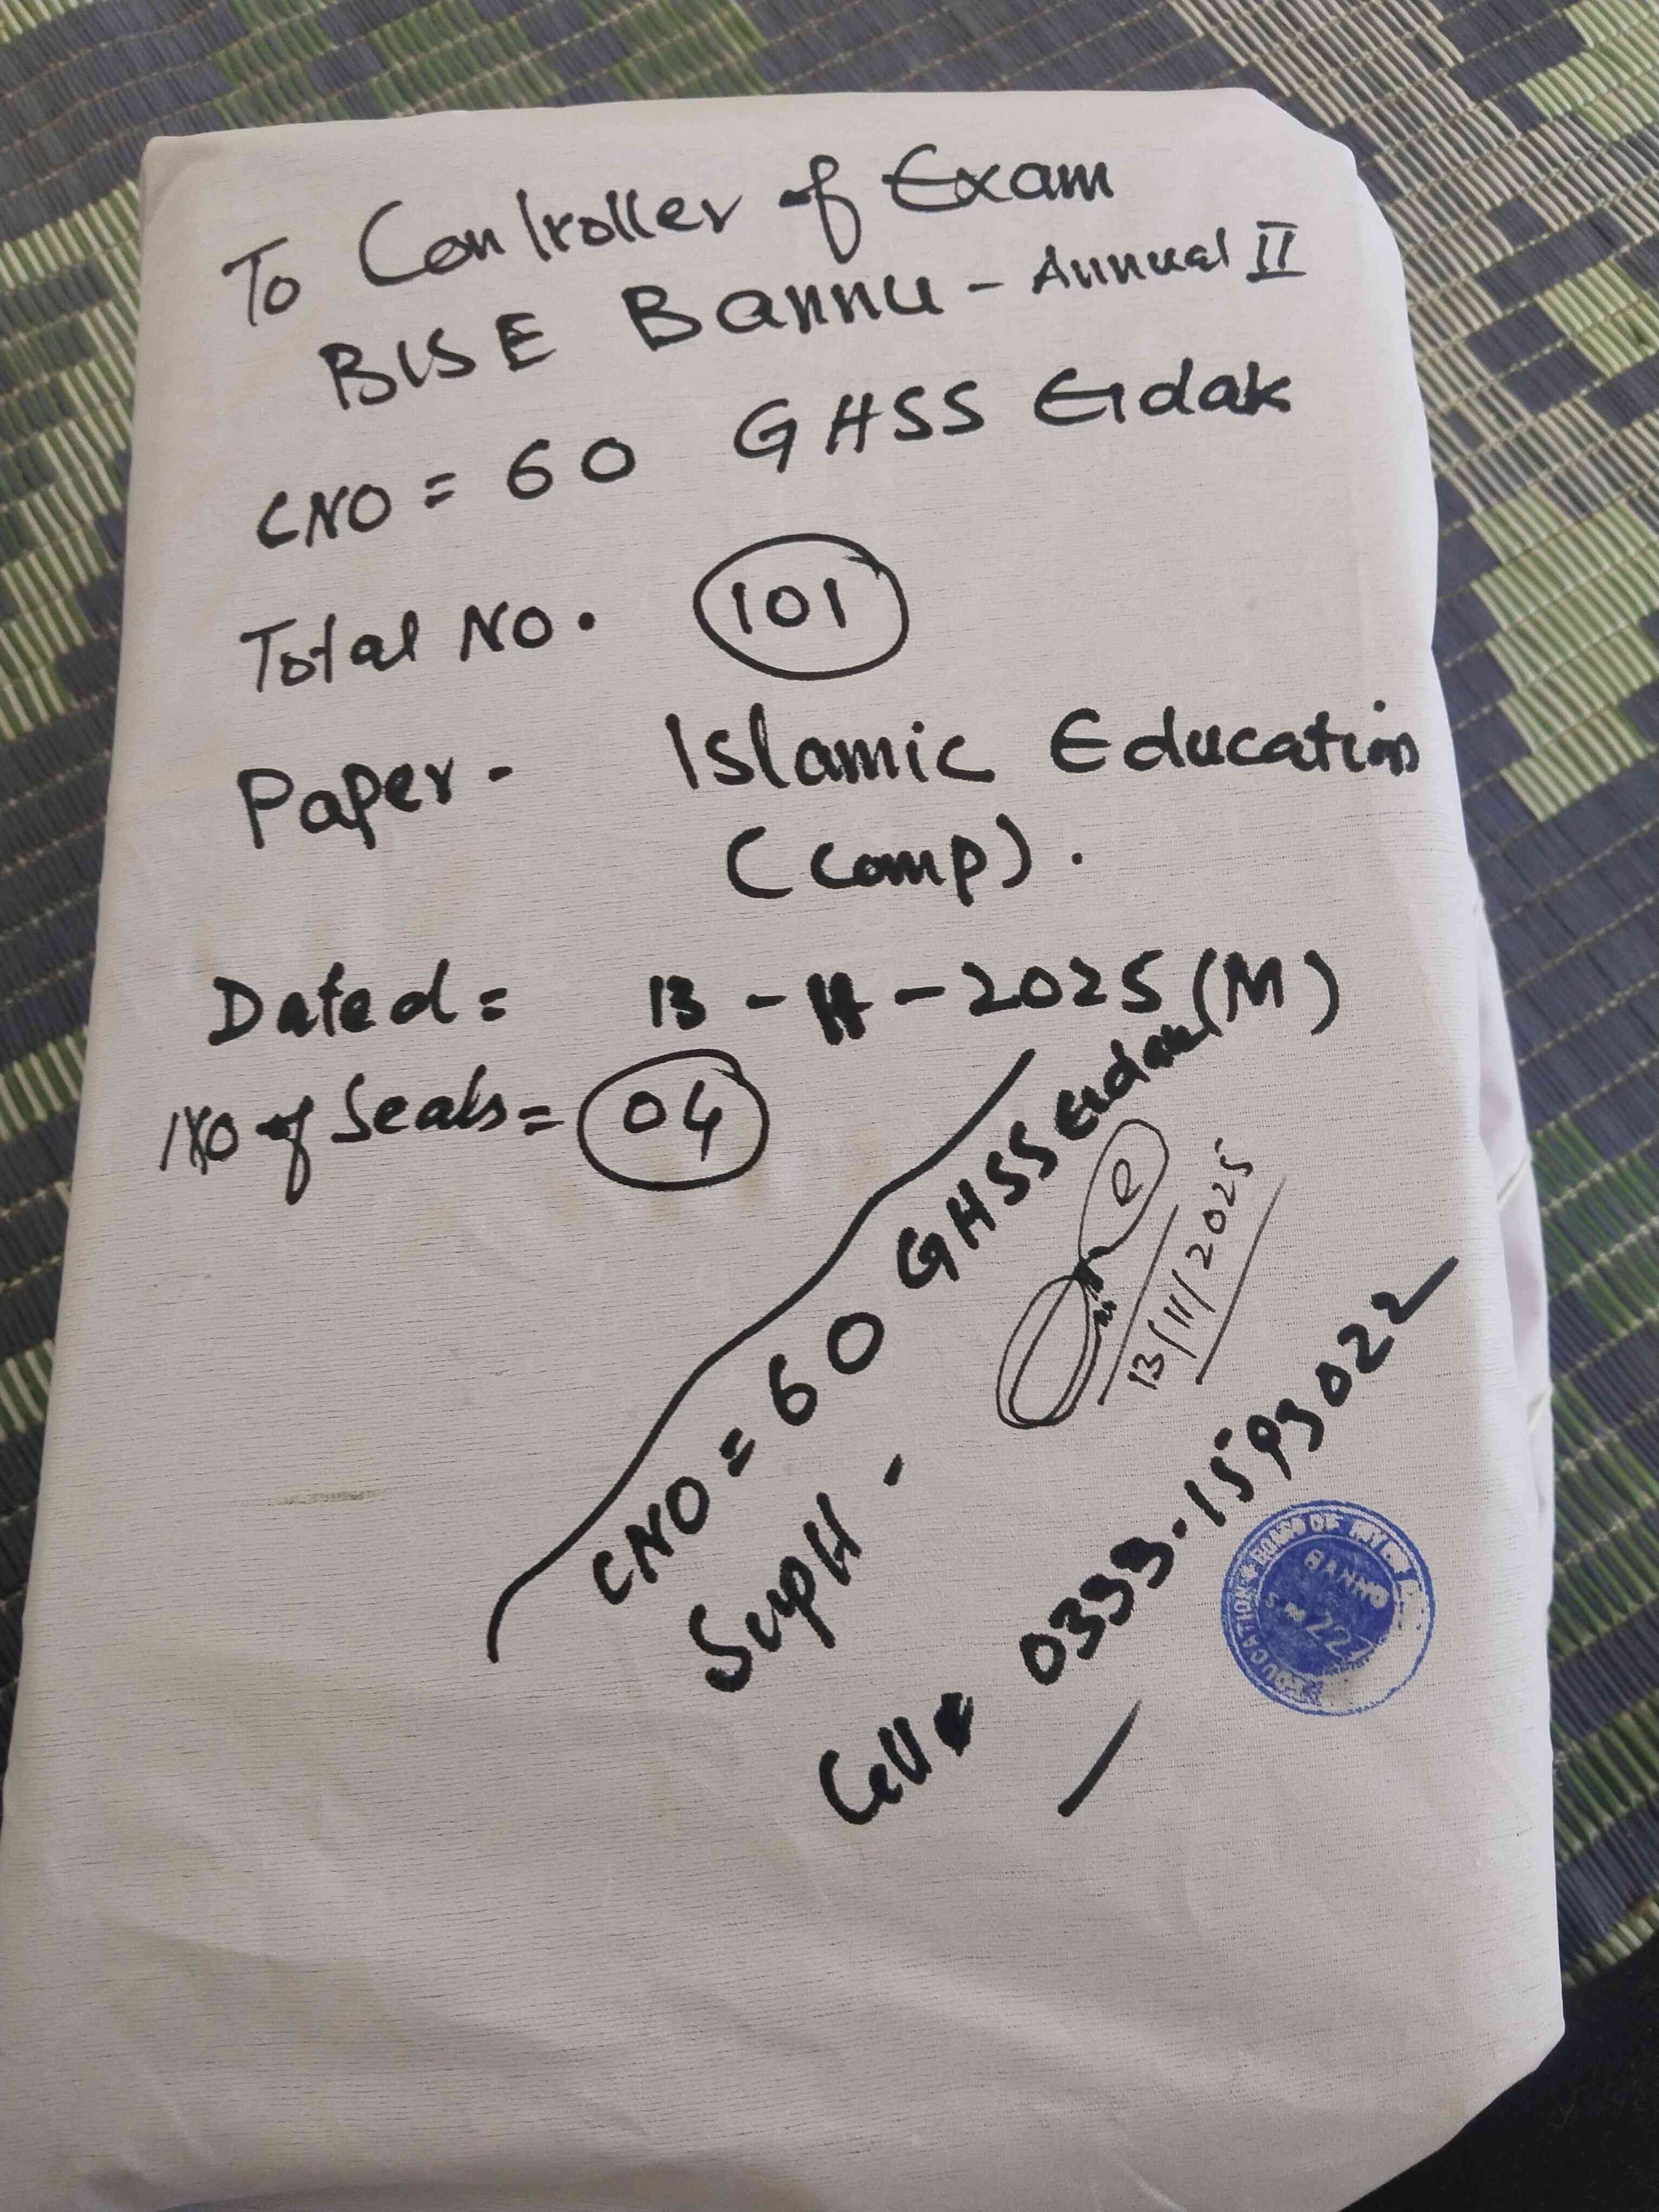 To Controller of Exam
BISE Bannu - Annual II
CNO = 60 GHSS Eidak
Total NO. 101
Paper - Islamic Education
(Comp).
Dated = 13 - 11 - 2025 (M)
NO of Seals = 04
CNO = 60 GHSS Eidak
Supdt -
13/11/2025
Cell# 0333-1593022
BOARD OF
EDUCATION
BANNU